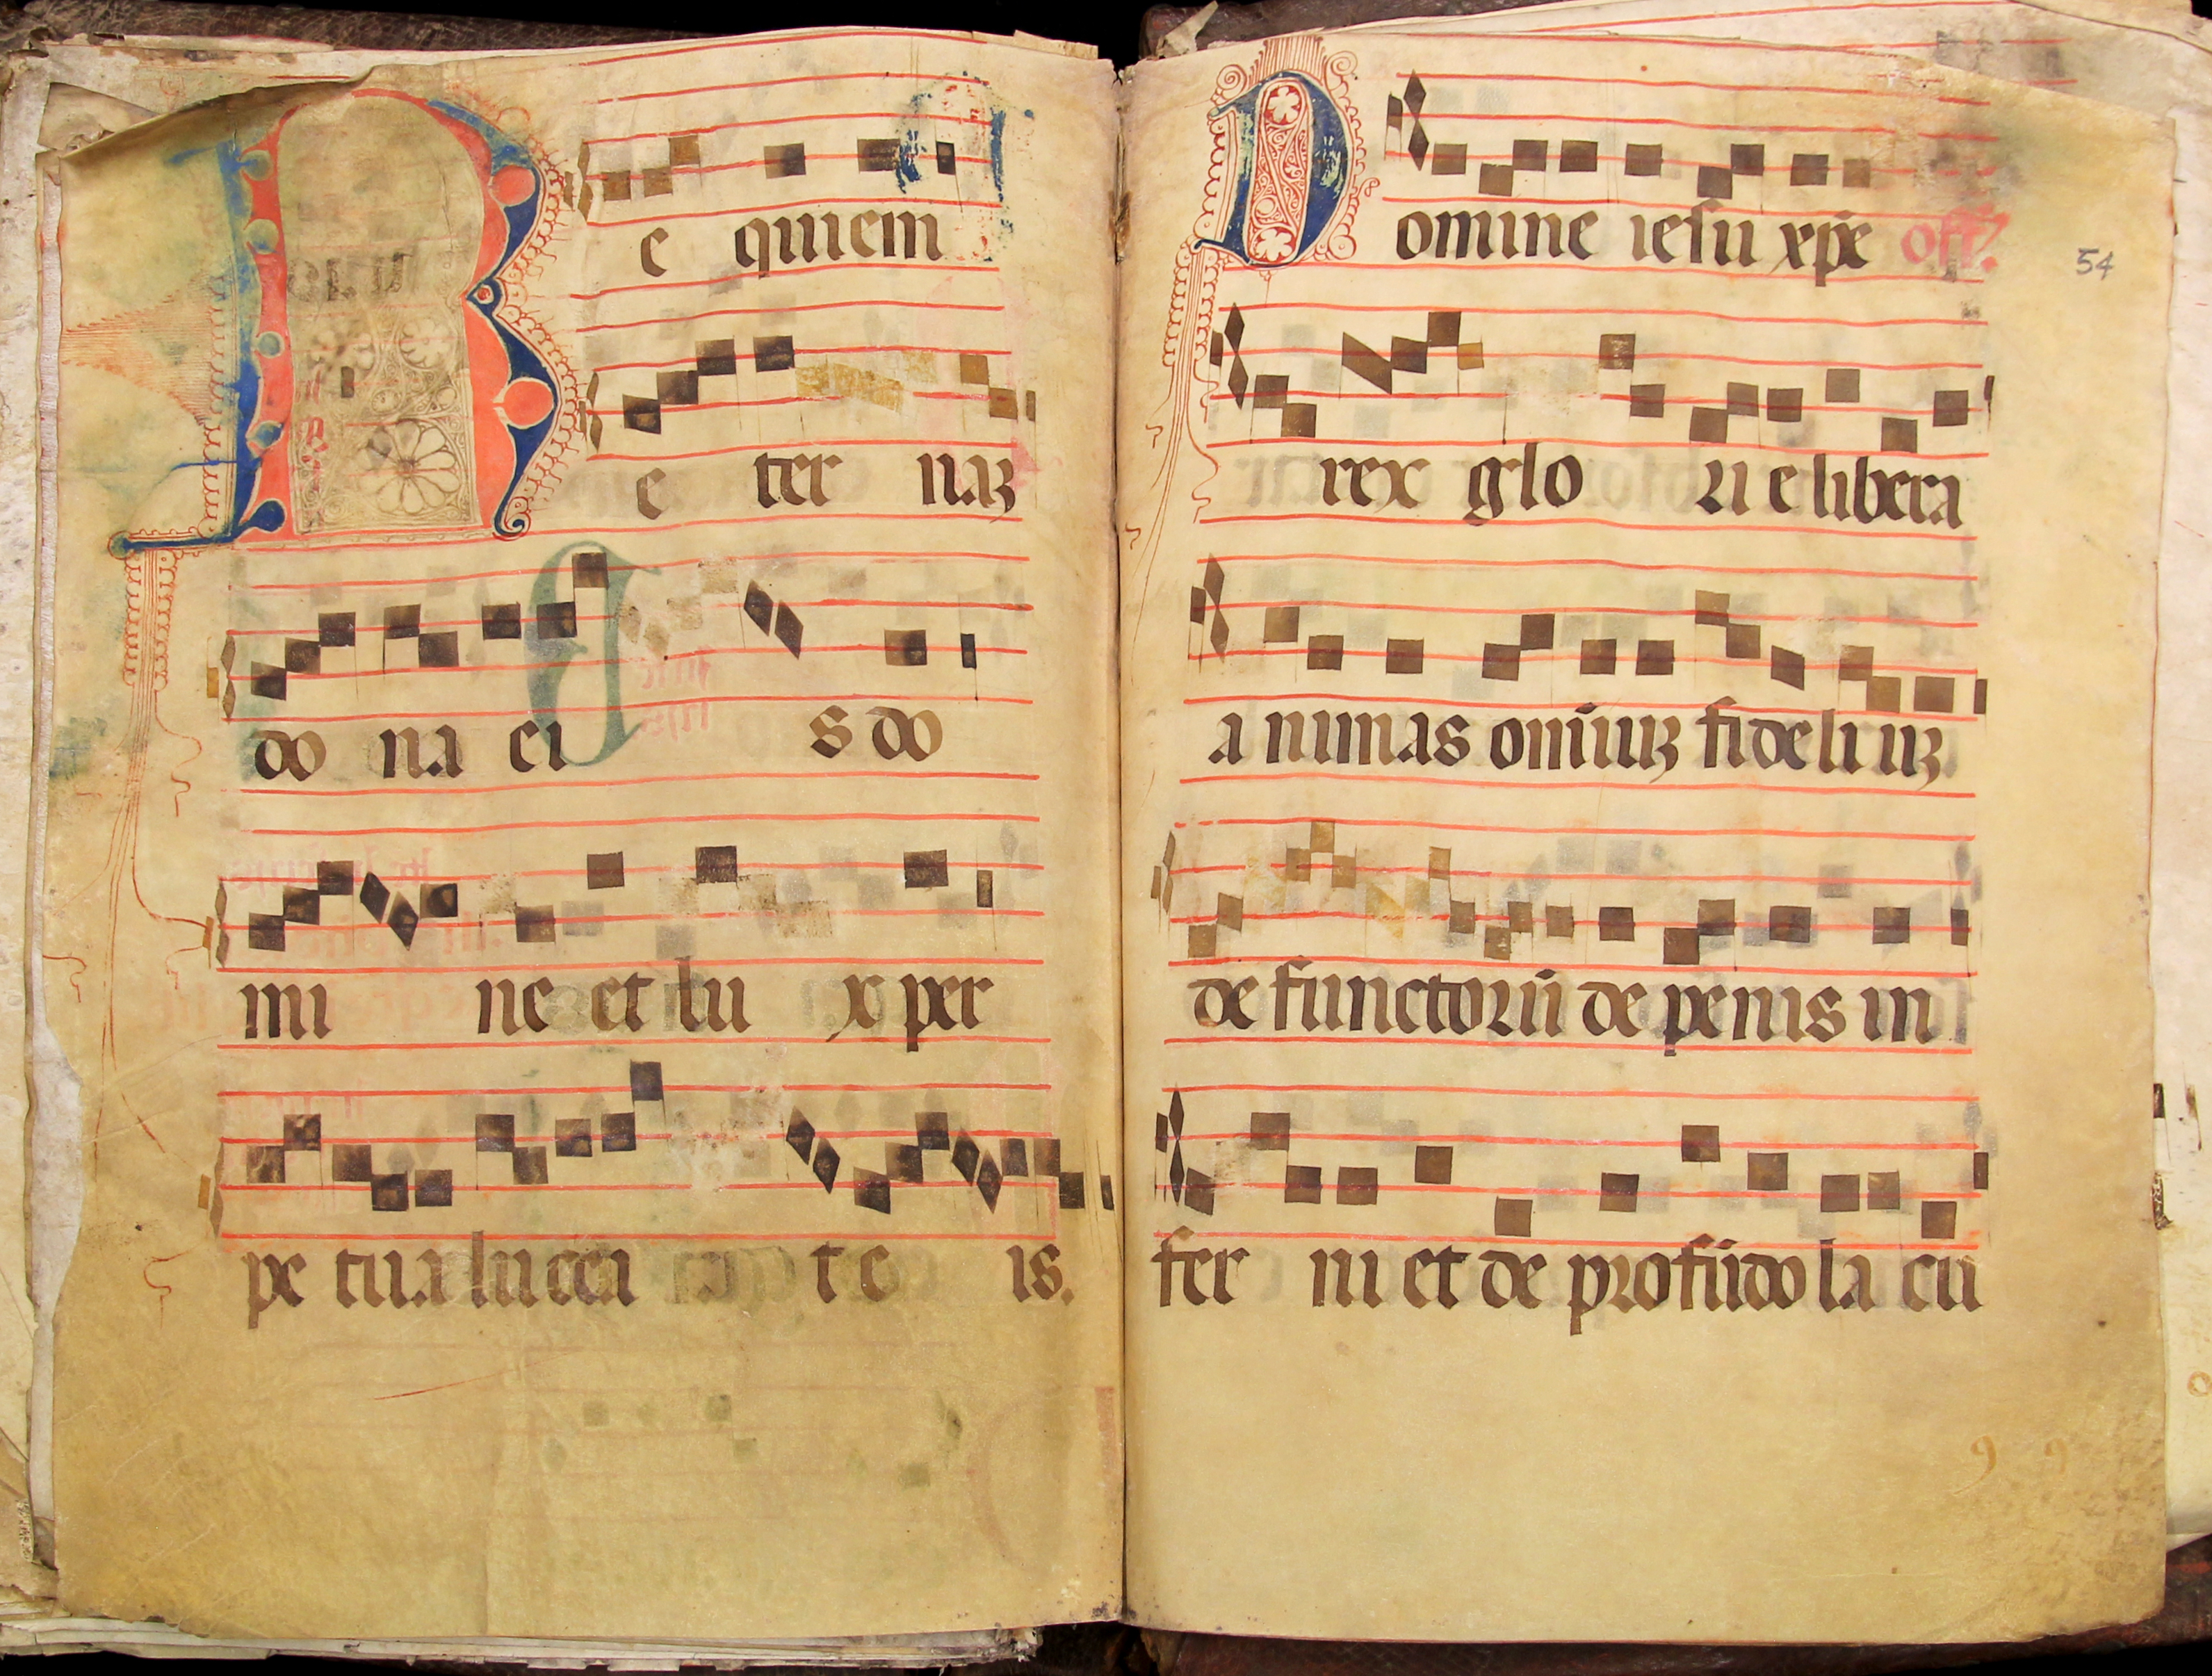 Re quiem
e ter naȝ
do na ei s do
mi ne et lu x per
pe tua lucea t e is.
Domine iesu xp̄e off?
54
rex glo ri e libera
a nimas om̄iuȝ fideli uȝ
de functorū de penis in
fer ni et de profūdo la cu